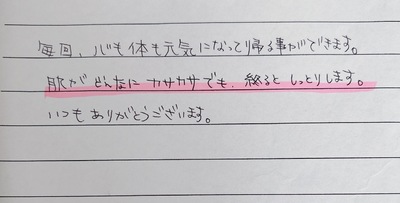 毎回、心も体も元気になって帰る事ができます。
肌がどんなにカサカサでも、終るとしっとりします。
いつもありがとうございます。